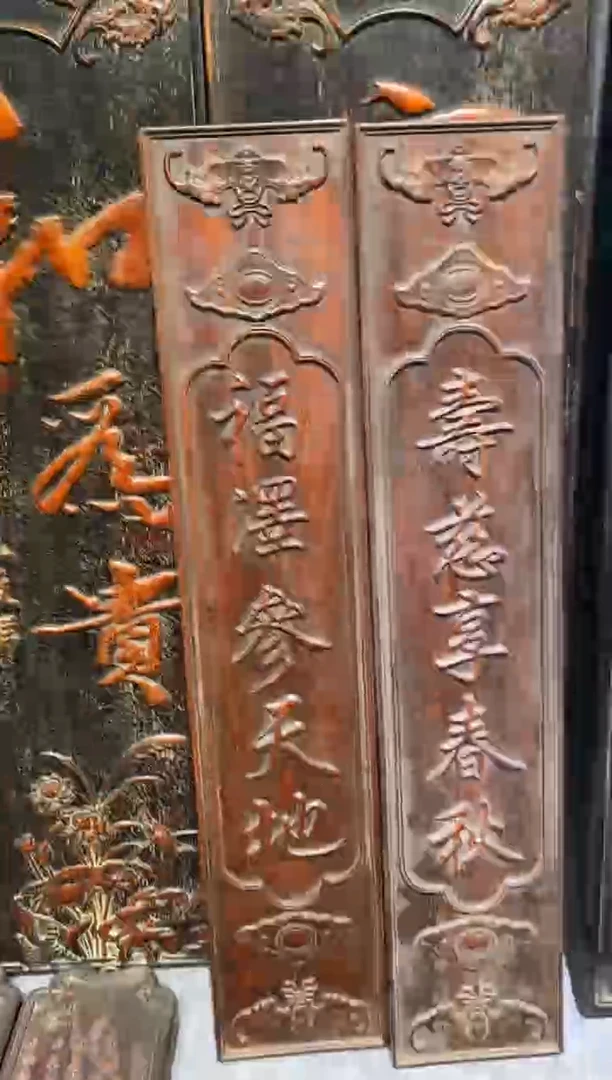 壽慈享春秋
福澤參天地
為貴